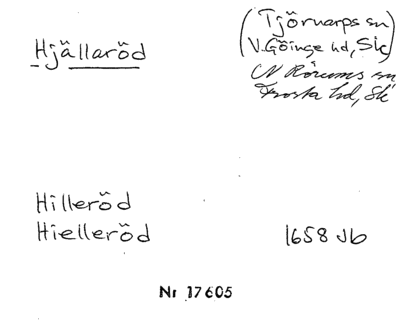 Hjällaröd
(Tjörnarps sn
V. Göinge hd, Sk)
N Rörums sn
Frosta hd, Sk
Hilleröd
Hielleröd 1658 Jb
Nr 17605